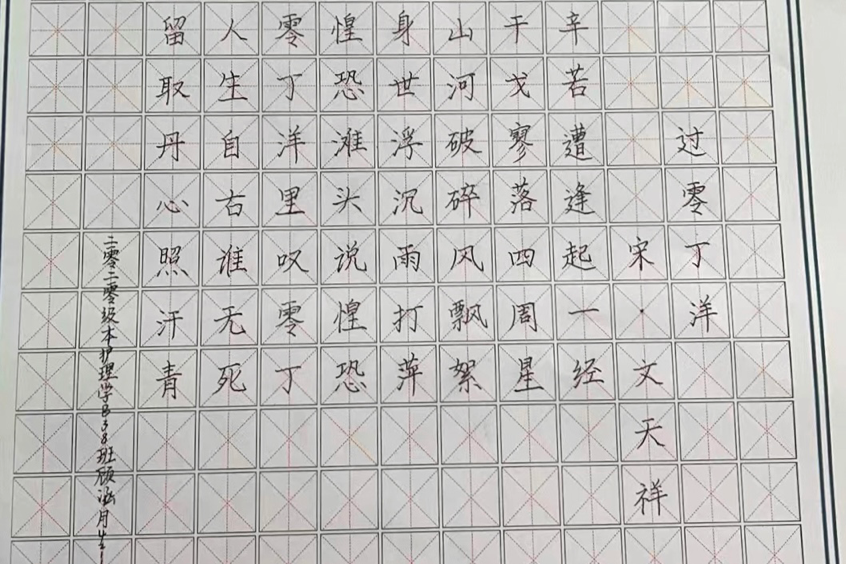 过零丁洋
宋·文天祥
辛苦遭逢起一经
干戈寥落四周星
山河破碎风飘絮
身世浮沉雨打萍
惶恐滩头说惶恐
零丁洋里叹零丁
人生自古谁无死
留取丹心照汗青
二零二零级本护理学B38班顾涵月